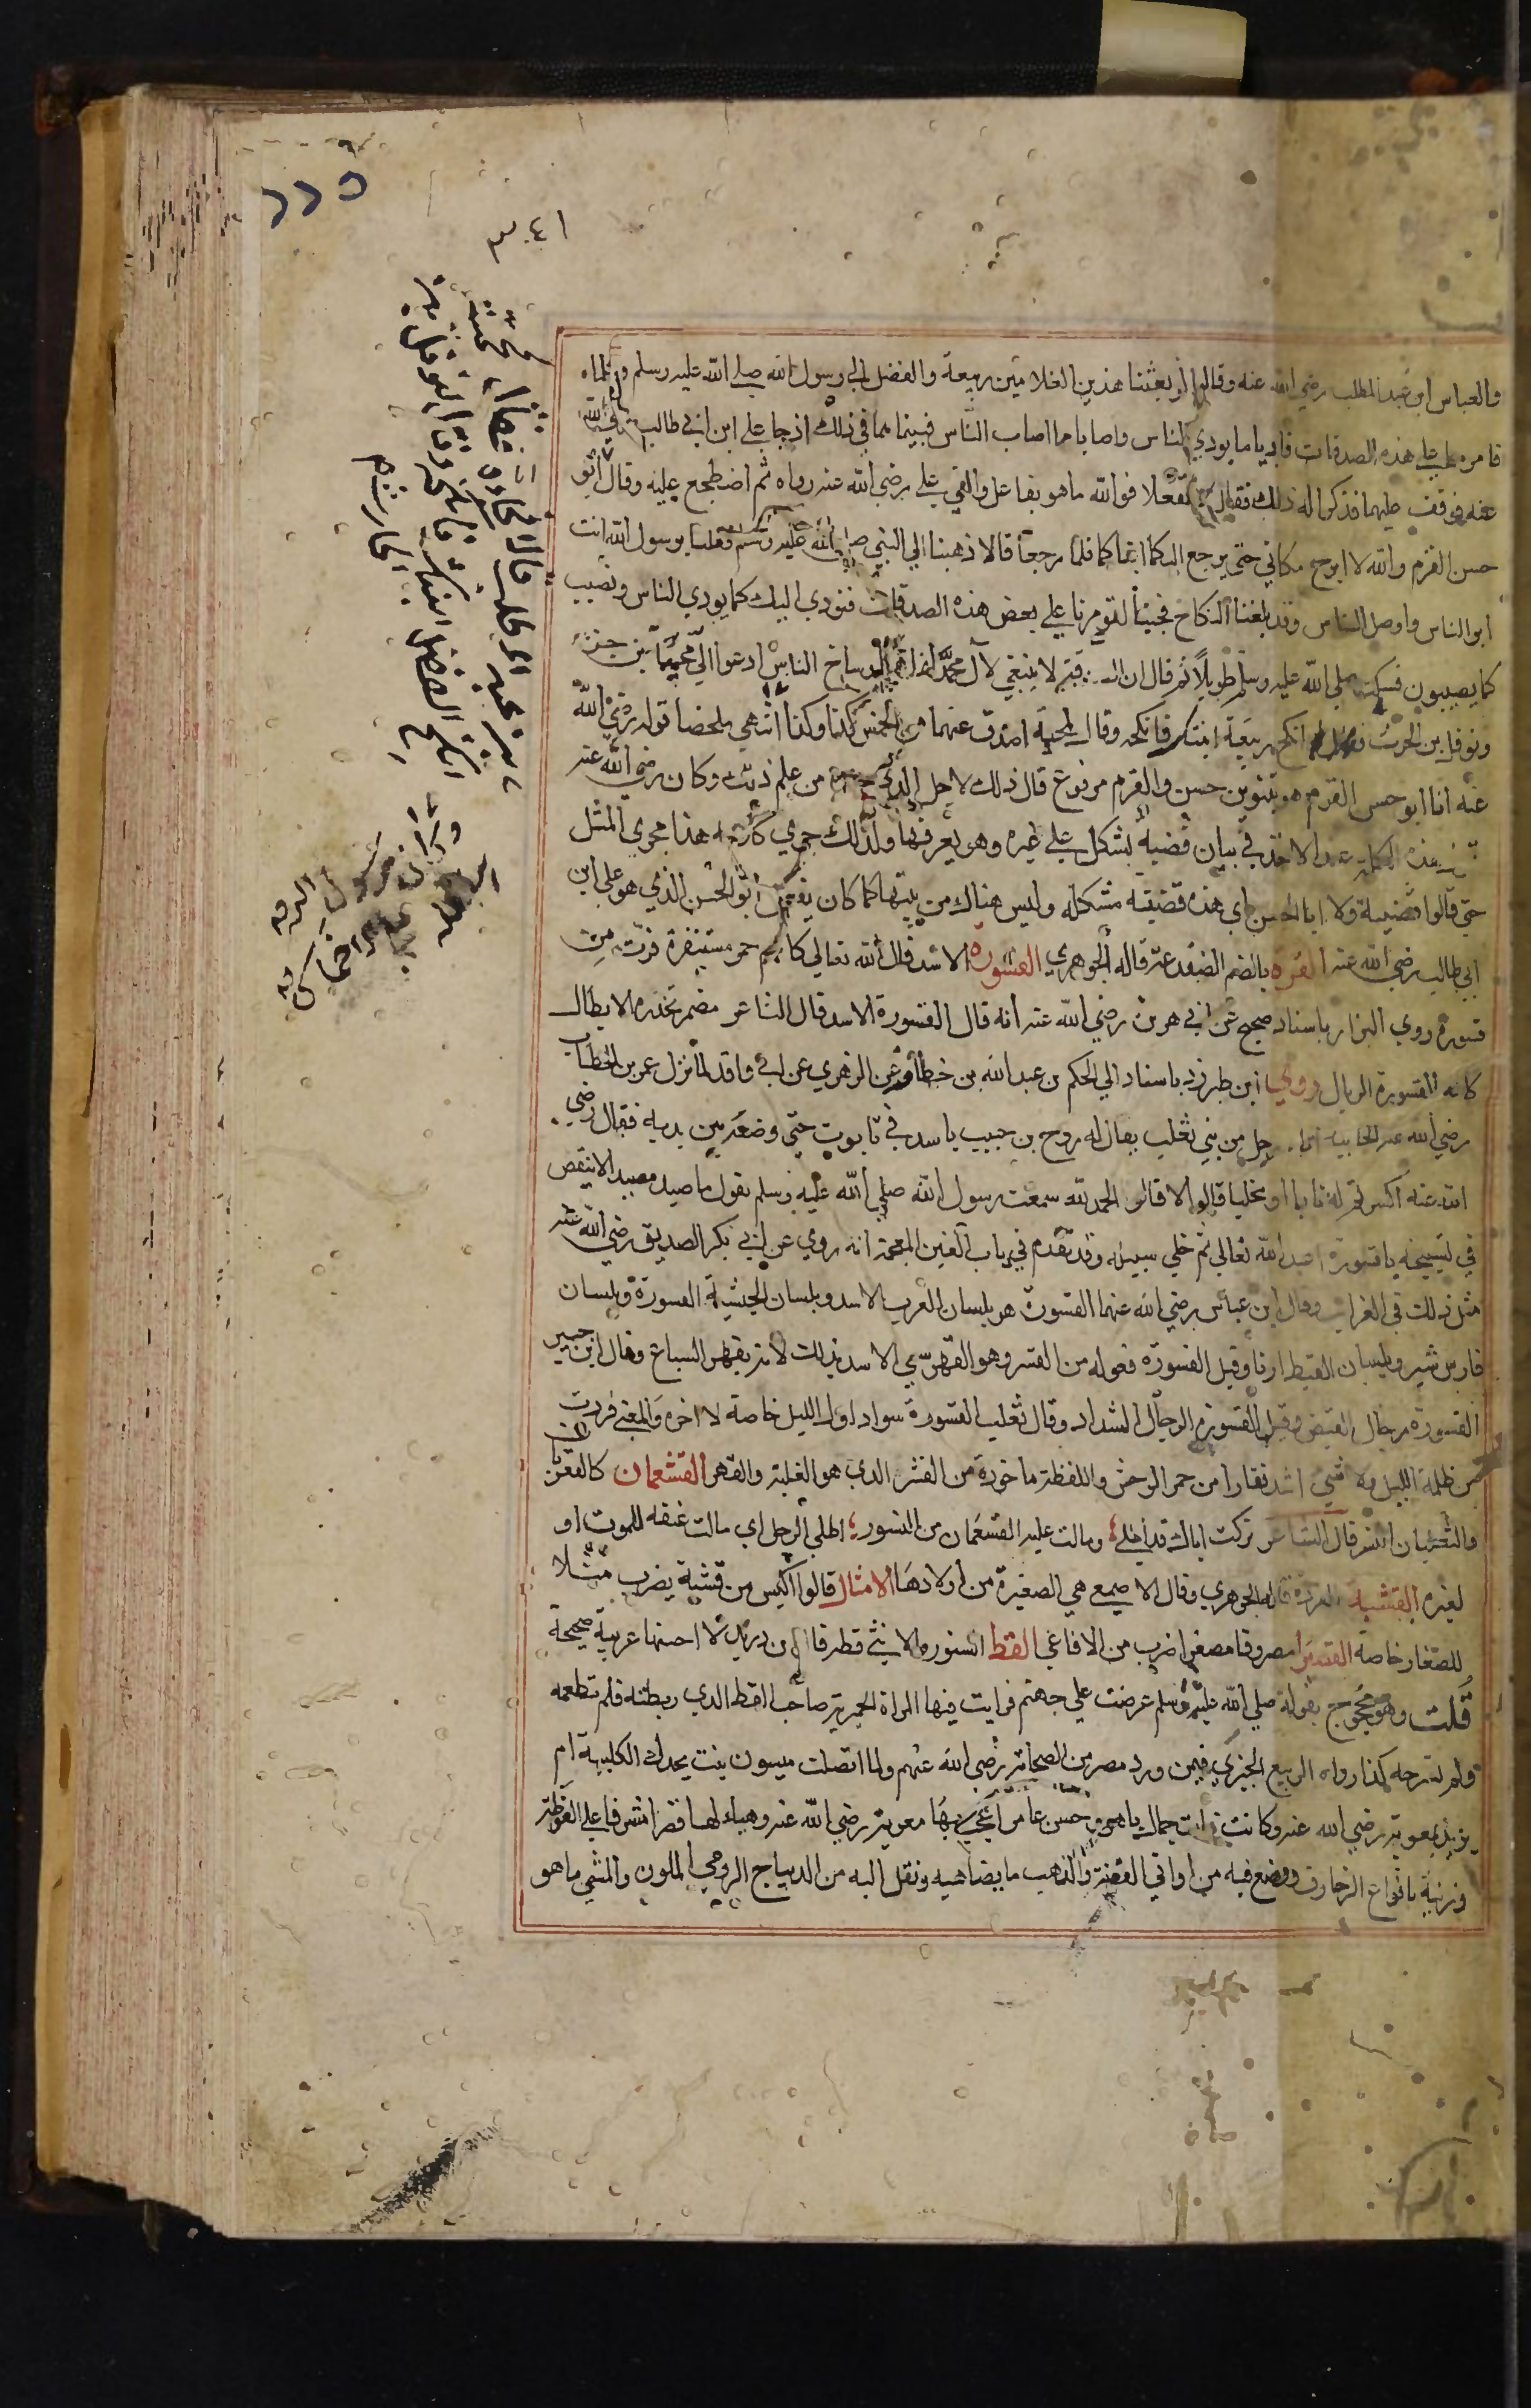 ٥٢٢
٣٠٤١
والعباس ابن عبد المطلب رضي الله عنه وقالوا لو بعثنا هذين الغلامين ربيعة والفضل الي رسول الله صلي الله عليه وسلم وكلماه
فامره علي هذه الصدقات فاديا ما يودي الناس واصابا مما اصاب الناس فبينما هما في ذلك اذ جا علي ابن ابي طالب رضي الله
عنه فوقف عليهما فذكرا له ذلك فقال لا تفعلا فوالله ما هو بفاعل والقي علي رضي الله عنه رداه ثم اضطجع عليه وقال انا ابو
حسن القرم والله لا ابرح مكاني حتي يرجع اليكما ابناكما فلما رجعا قالا ذهبنا الي النبي صلي الله عليه وسلم فقلنا يرسول الله انت
ابر الناس واوصل الناس وقد بلغنا النكاح فجينا لتومرنا علي بعض هذه الصدقات فنودي اليك كما يودي الناس ونصيب
كما يصيبون فسكت صلي الله عليه وسلم طويلا ثم قال ان الصدقة لا ينبغي لآل محمد انما هي اوساخ الناس ادعوا الي محمية بن جزء
ونوفل بن الحرث فقال انكح ربيعة ابنتك فانكحه وقال لمحمية اصدق عنهما من الخمس كذا وكذا انتهي ملخصا قوله رضي الله
عنه انا ابو حسن القرم هو بتنوين حسن والقرم مرفوع قال ذلك لاجل الذي عنده من علم ذلك وكان رضي الله عنه
هذه الكلمة عند الاخذ في بيان قضية يشكل علي غيره وهو يعرفها ولذلك جري كلامه هذا مجري المثل
حتي قالوا قضية ولا ابا الحسن اي هذه قضية مشكلة وليس هناك من يبينها كما كان يفعل ابو الحسن الذي هو علي ابن
ابي طالب رضي الله عنه القره بالضم الضفدعة قاله الجوهري القسورة الاسد قال الله تعالي كانهم حمر مستنفرة فرت من
قسورة روي البزار باسناد صحيح عن ابي هريرة رضي الله عنه انه قال القسورة الاسد قال الشاعر مضمر تحذره الابطال
كانه القسورة الريبال وروي ابن طبرزد باسناد الي الحكم بن عبد الله بن خطاف عن الزهري عن ابي واقد لما نزل عمر بن الخطاب
رضي الله عنه الجابية اتاه رجل من بني تغلب يقال له روح بن حبيب باسد في تابوت حتي وضعه بين يديه فقال رضي
الله عنه اكسرتم له نابا او مخلبا قالوا لا قال الحمد لله سمعت رسول الله صلي الله عليه وسلم يقول ما صيد مصيد الا بنقص
في تسبيحه يا قسورة اعبد الله تعالي ثم خلي سبيله وقد تقدم في باب الغين المعجمة انه روي عن ابي بكر الصديق رضي الله عنه
مثل ذلك في الغراب وقال ابن عباس رضي الله عنهما القسورة هو بلسان العرب الاسد وبلسان الحبشية القسورة وبلسان
فارس شير وبلسان القبط اريا وقيل القسورة فعوله من القسر وهو القهر سمي الاسد بذلك لانه يقهر السباع وقال ابن جبير
القسورة رجال القنص وقيل القسورة الرجال الشداد وقال ثعلب القسورة سواد اول الليل خاصة لا اخره والمعني فرت
من ظلمة الليل ولا شي اشد نفارا من حمر الوحش واللفظة ماخوذة من القسر الذي هو الغلبة والقهر القشعمان كالعقربان
والثعلبان النسر قال الشاعر تركت اباك قد اطلي ومالت عليه القشعمان من النسور اطلي الرجل اي مالت عنقه للموت او
لغيره القشبة القردة قاله الجوهري وقال الاصمعي هي الصغيرة من اولادها الامثال قالوا اكيس من قشبة يضرب مثلا
للصغار خاصة القصيري مصروفا مصغرا ضرب من الافاعي القط السنور والانثي قطة قال ابن دريد لا احسبها عربية صحيحة
قلت وهو محجوج بقوله صلي الله عليه وسلم عرضت علي جهنم فرايت فيها المراة الحميرية صاحبة القط الذي ربطته فلم تطعمه
ولم تسرحه كذا رواه الربيع الجيزي فيمن ورد مصر من الصحابة رضي الله عنهم ولما اتصلت ميسون بنت بحدل الكلبية ام
يزيد بمعوية رضي الله عنه وكانت ذات جمال باهر وحسن عامر اعجب بها معوية رضي الله عنه وهياء لها قصرا مشرفا علي الغوطة
وزينه بانواع الزخارف ووضع فيه من اواني الفضة والذهب ما يضاهيه ونقل اليه من الديباج الرومي الملون والمثي ما هو